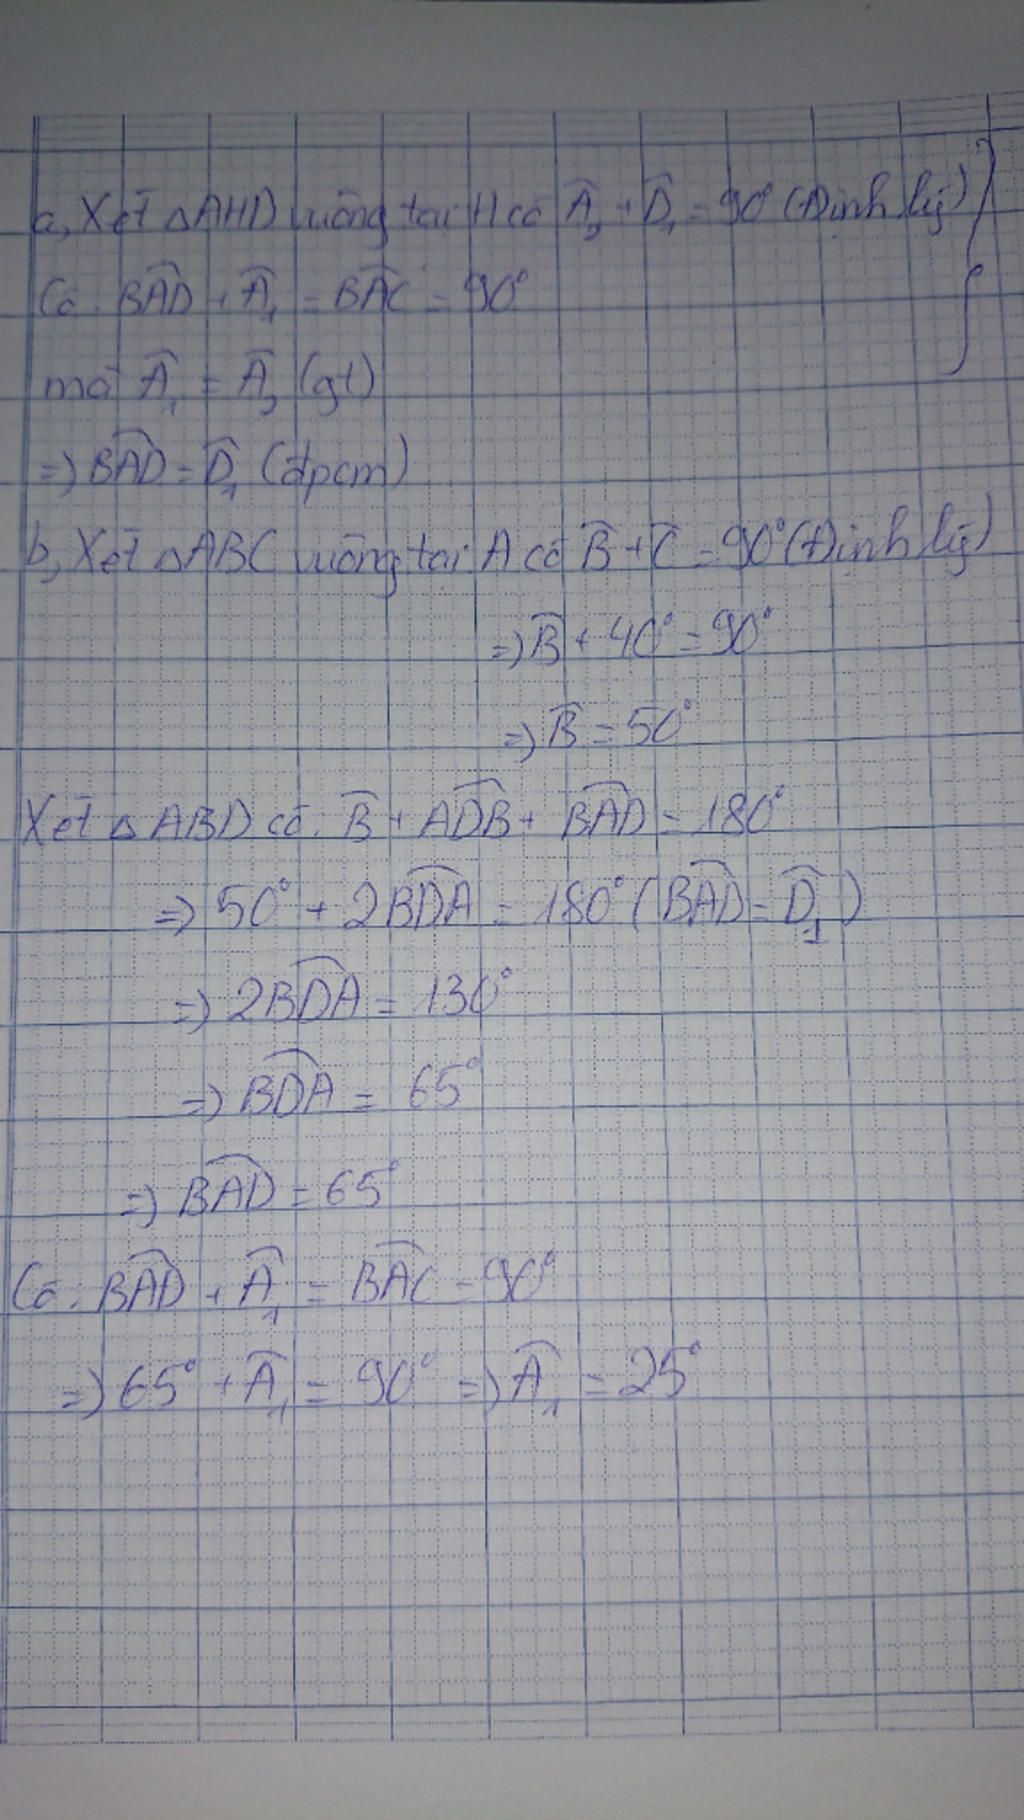 a, Xét ΔAHD vuông tại H có Â₂ + D̂₁ = 90° (Định lý)
Có: BÂD + Â₁ = BÂC = 90°
mà Â₁ = Â₂ (gt)
=> BÂD = D̂₁ (đpcm)
b, Xét ΔABC vuông tại A có B̂ + Ĉ = 90° (Định lý)
=> B̂ + 40° = 90°
=> B̂ = 50°
Xét Δ ABD có: B̂ + AD̂B + BÂD = 180°
=> 50° + 2BD̂A = 180° (BÂD = D̂₁)
=> 2BD̂A = 130°
=> BD̂A = 65°
=> BÂD = 65°
Có: BÂD + Â₁ = BÂC = 90°
=> 65° + Â₁ = 90° => Â₁ = 25°